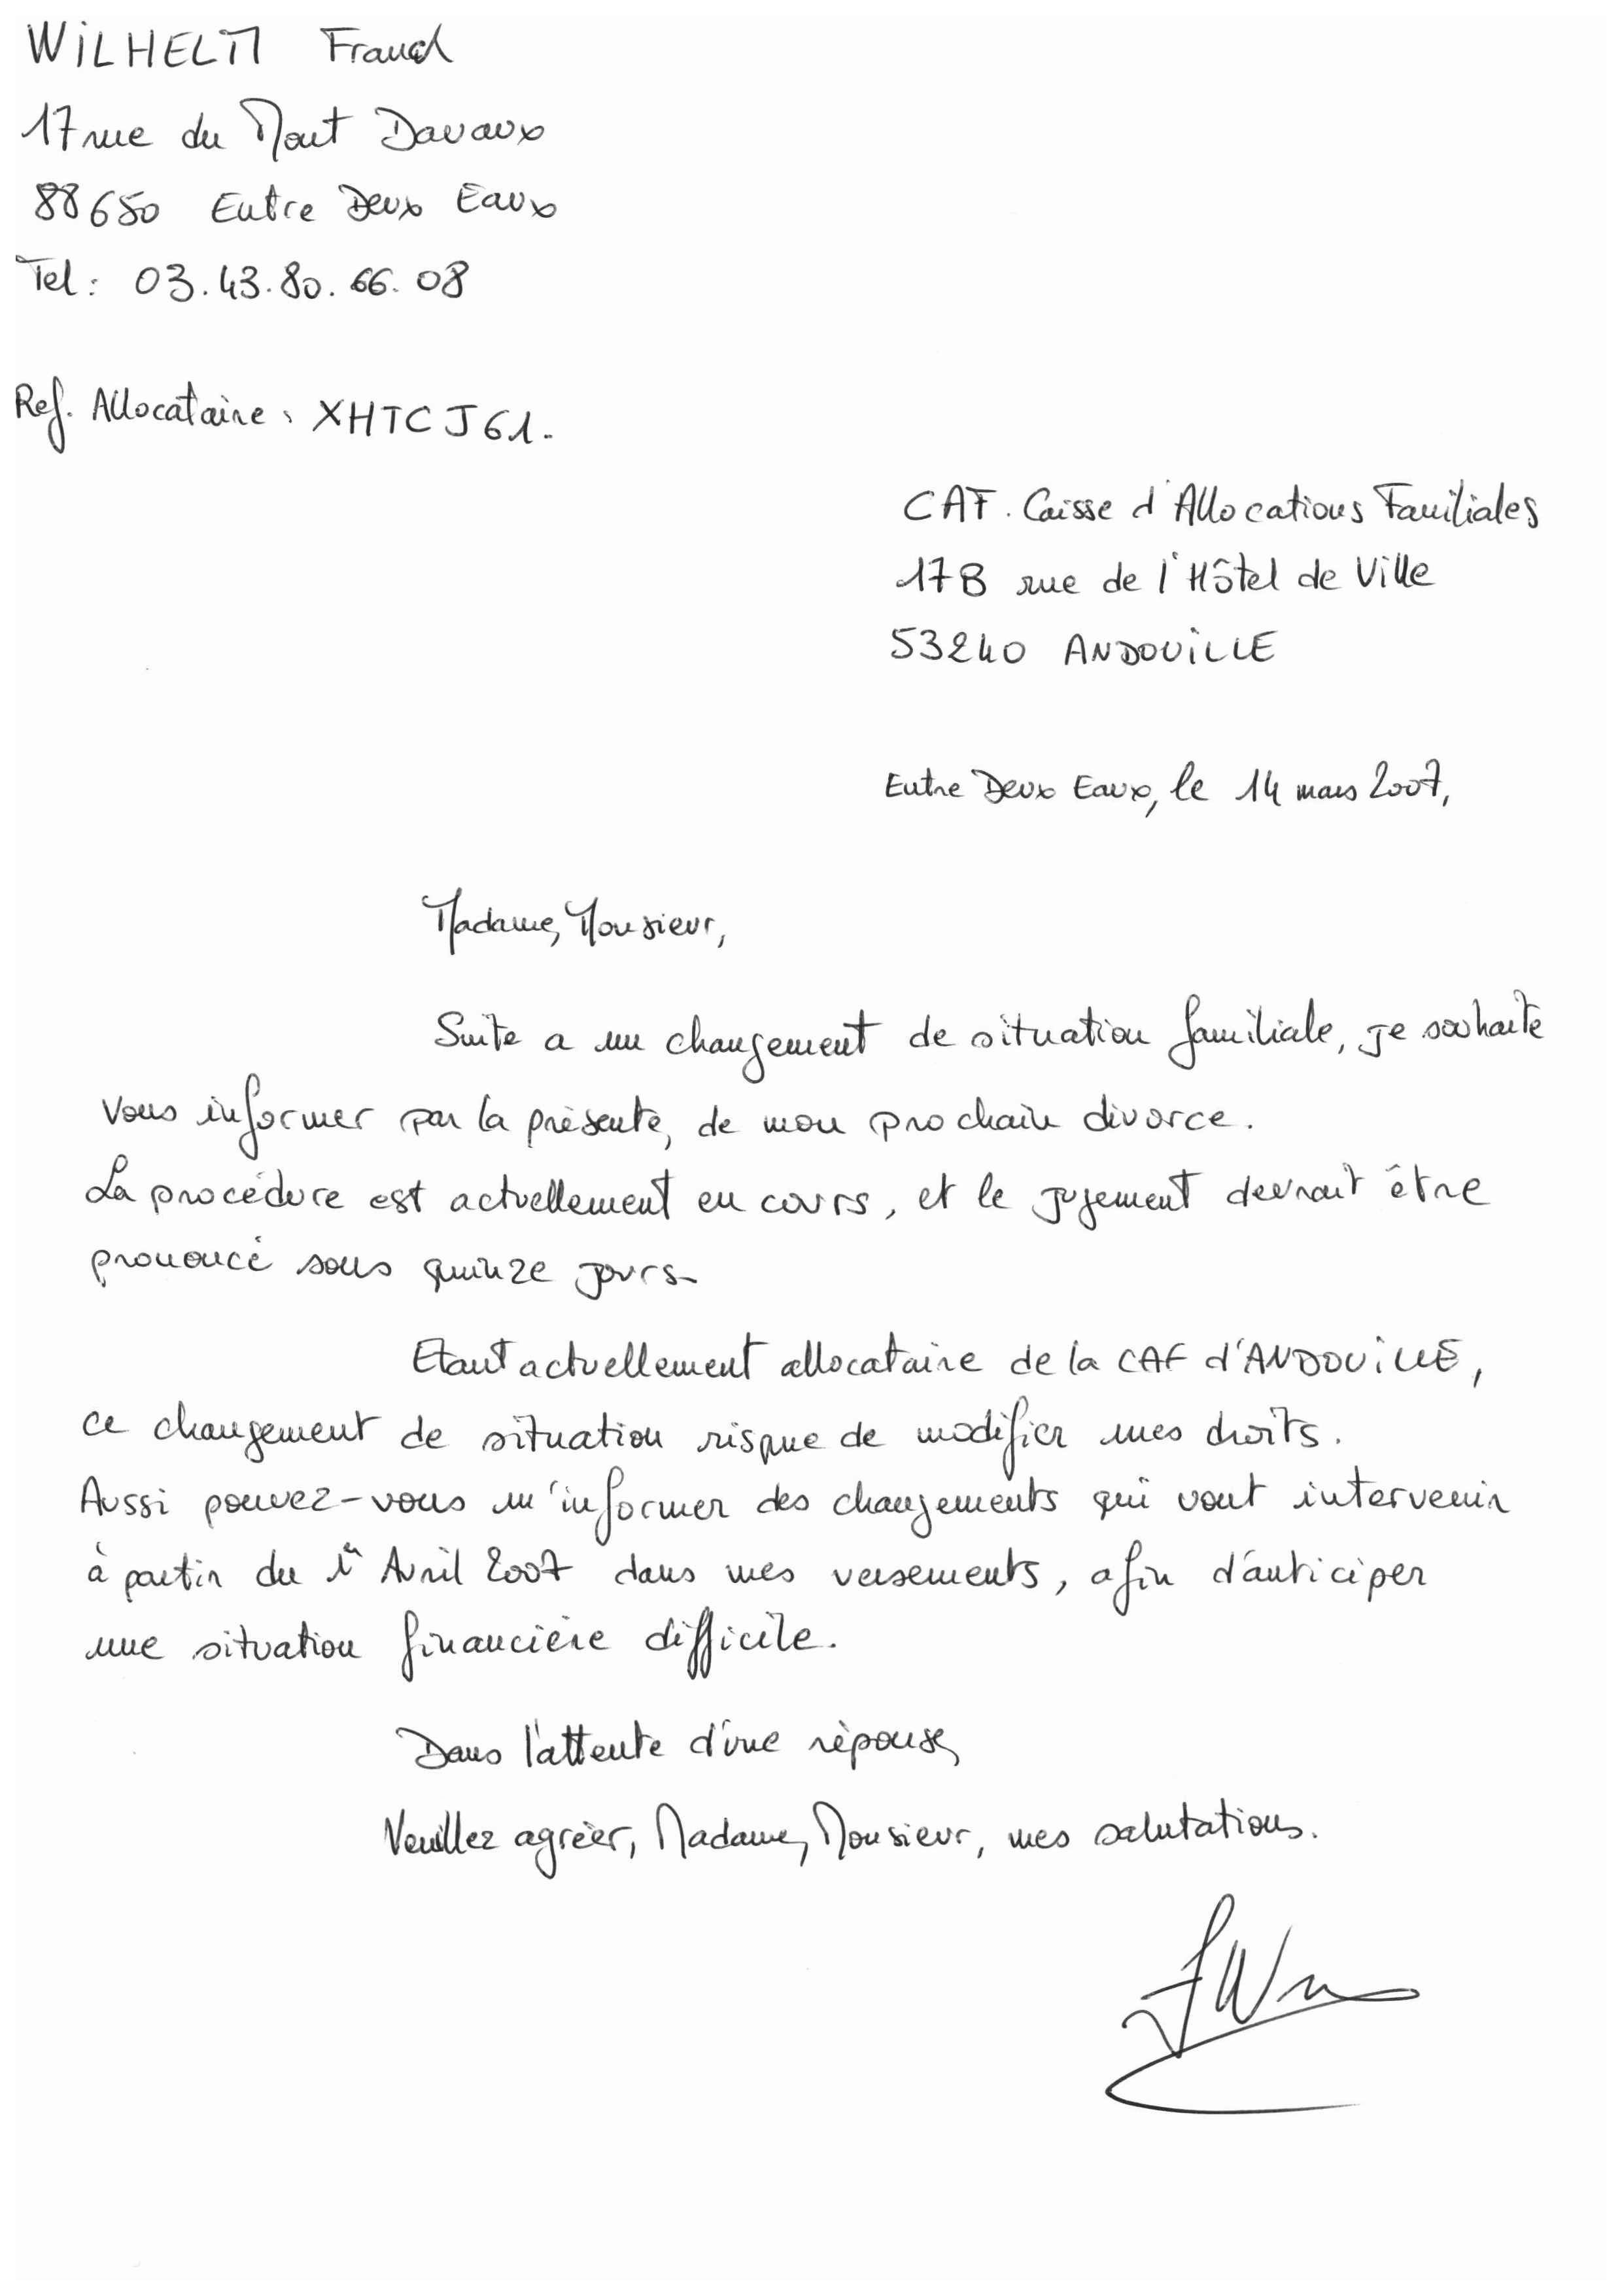 WILHELM Franck
17 rue du Mont Davaux
88650 Entre Deux Eaux
Tel : 03.43.80.66.08
Ref. Allocataire : XHTCJ61.
CAF. Caisse d'Allocations Familiales
17B rue de l'Hôtel de Ville
53240 ANDOUILLE
Entre Deux Eaux, le 14 mars 2007,
Madame, Monsieur,
Suite a un changement de situation familiale, je souhaite
vous informer par la présente, de mon prochain divorce.
La procédure est actuellement en cours, et le jugement devrait être
prononcé sous quinze jours.
Etant actuellement allocataire de la CAF d'ANDOUILLE,
ce changement de situation risque de modifier mes droits.
Aussi pouvez-vous m'informer des changements qui vont intervenir
à partir du 1er Avril 2007 dans mes versements, afin d'anticiper
une situation financière difficile.
Dans l'attente d'une réponse,
Veuillez agréer, Madame, Monsieur, mes salutations.